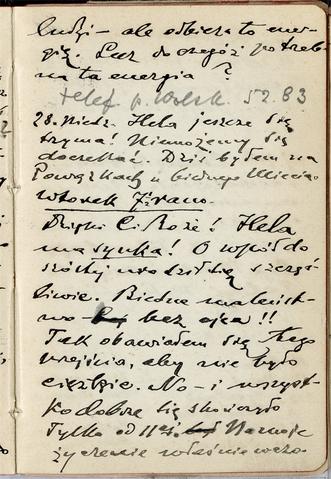 ludzi – ale odbiera to ener-
gię. Lecz do czegóż potrzeb-
na ta energia?
telef p. Wolsk. 52.83
28. Niedz. Hela jeszcze się
trzyma! Niemożemy się
doczekać. Dziś byłem na
Powązkach u biednego Miecia.
wtorek 7. rano.
Dzięki Ci Boże! Hela
ma synka! O wpół do
szóstej urodził się szczęś
liwie. Biedne maleńst-
wo bez ojca!!
Tak obawiałem się tego
wejścia, aby nie było
ciężkie. No – i wszyst-
ko dobrze się skończyło
Tylko od 11ej
życzenie właśnie wczo